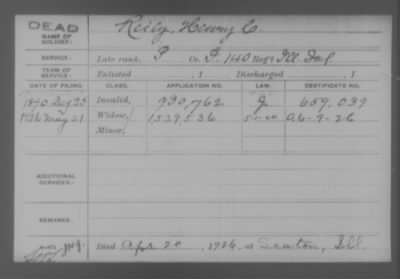 DEAD
NAME OF SOLDIER: Reily, Henry C.
SERVICE: Late rank, P Co. F, 140 Reg't Ill. Inf.
TERM OF SERVICE: Enlisted , 1 Discharged , 1
DATE OF FILING. CLASS. APPLICATION NO. LAW. CERTIFICATE NO.
1890 Aug 23 Invalid, 930,762 J 659,039
1926 May 21 Widow, 1539536 A-6-9-26
Minor,
ADDITIONAL SERVICES:
REMARKS:
Died Apr 20, 1926, at Seaton, Ill.